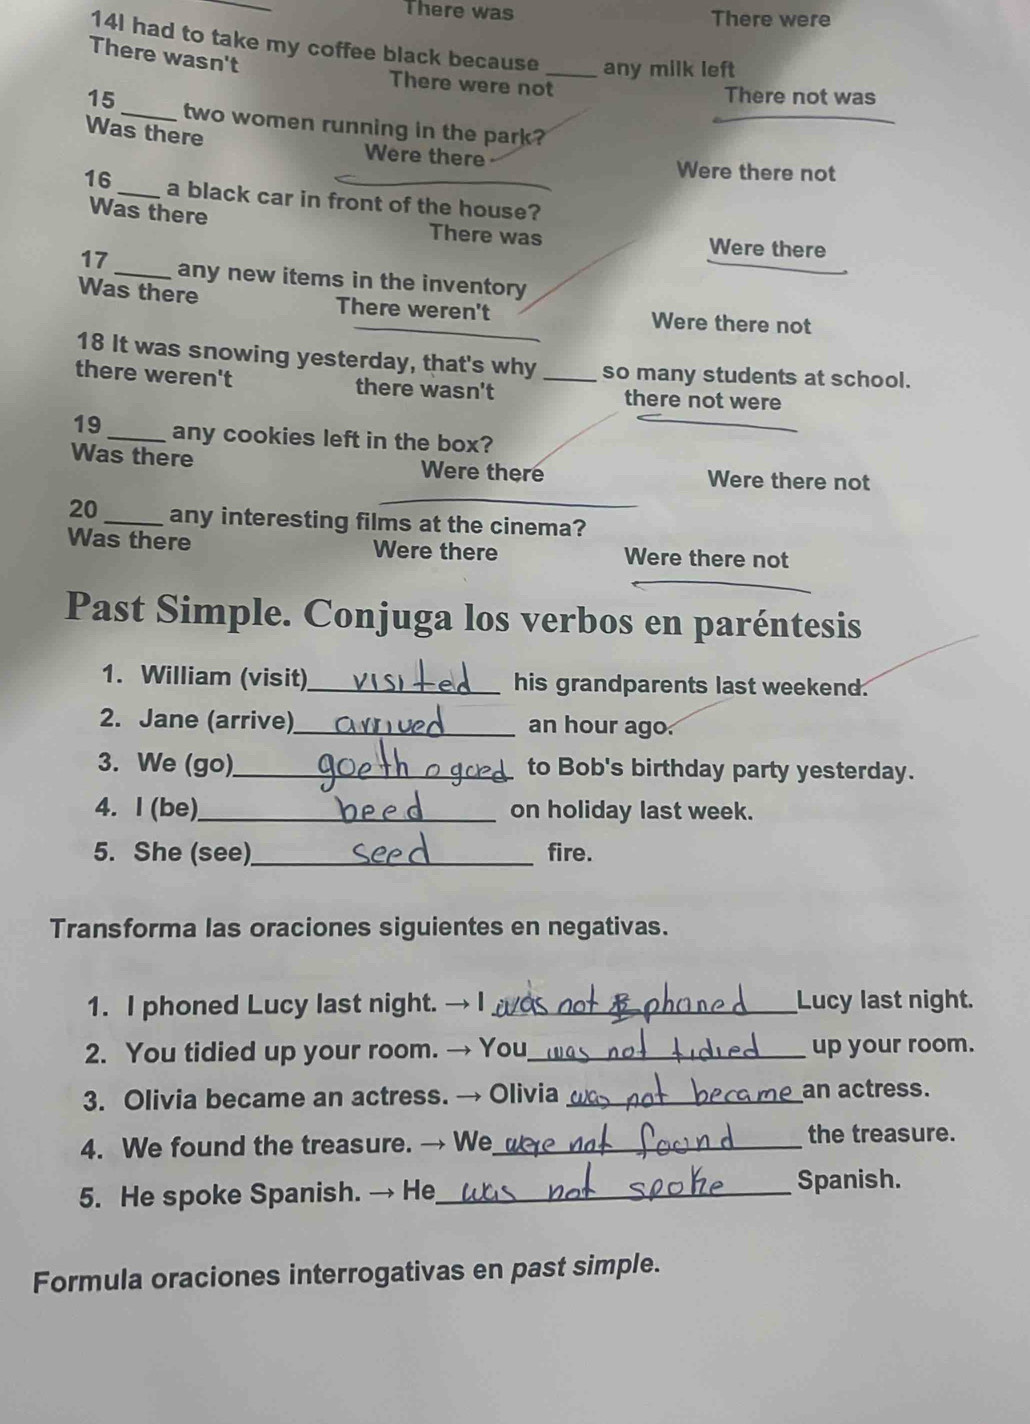 There was There were
14I had to take my coffee black because ____ any milk left
There wasn't There were not There not was
15 ____ two women running in the park?
Was there Were there Were there not
16 ____ a black car in front of the house?
Was there There was Were there
17 ____ any new items in the inventory
Was there There weren't Were there not
18 It was snowing yesterday, that's why ____ so many students at school.
there weren't there wasn't there not were
19 ____ any cookies left in the box?
Was there Were there Were there not
20 ____ any interesting films at the cinema?
Was there Were there Were there not
Past Simple. Conjuga los verbos en paréntesis
1. William (visit) visited his grandparents last weekend.
2. Jane (arrive) arrived an hour ago.
3. We (go) goeth o goed to Bob's birthday party yesterday.
4. I (be) beed on holiday last week.
5. She (see) seed fire.
Transforma las oraciones siguientes en negativas.
1. I phoned Lucy last night. → I was not phoned Lucy last night.
2. You tidied up your room. → You was not tidied up your room.
3. Olivia became an actress. → Olivia was not became an actress.
4. We found the treasure. → We were not foond the treasure.
5. He spoke Spanish. → He was not spoke Spanish.
Formula oraciones interrogativas en past simple.